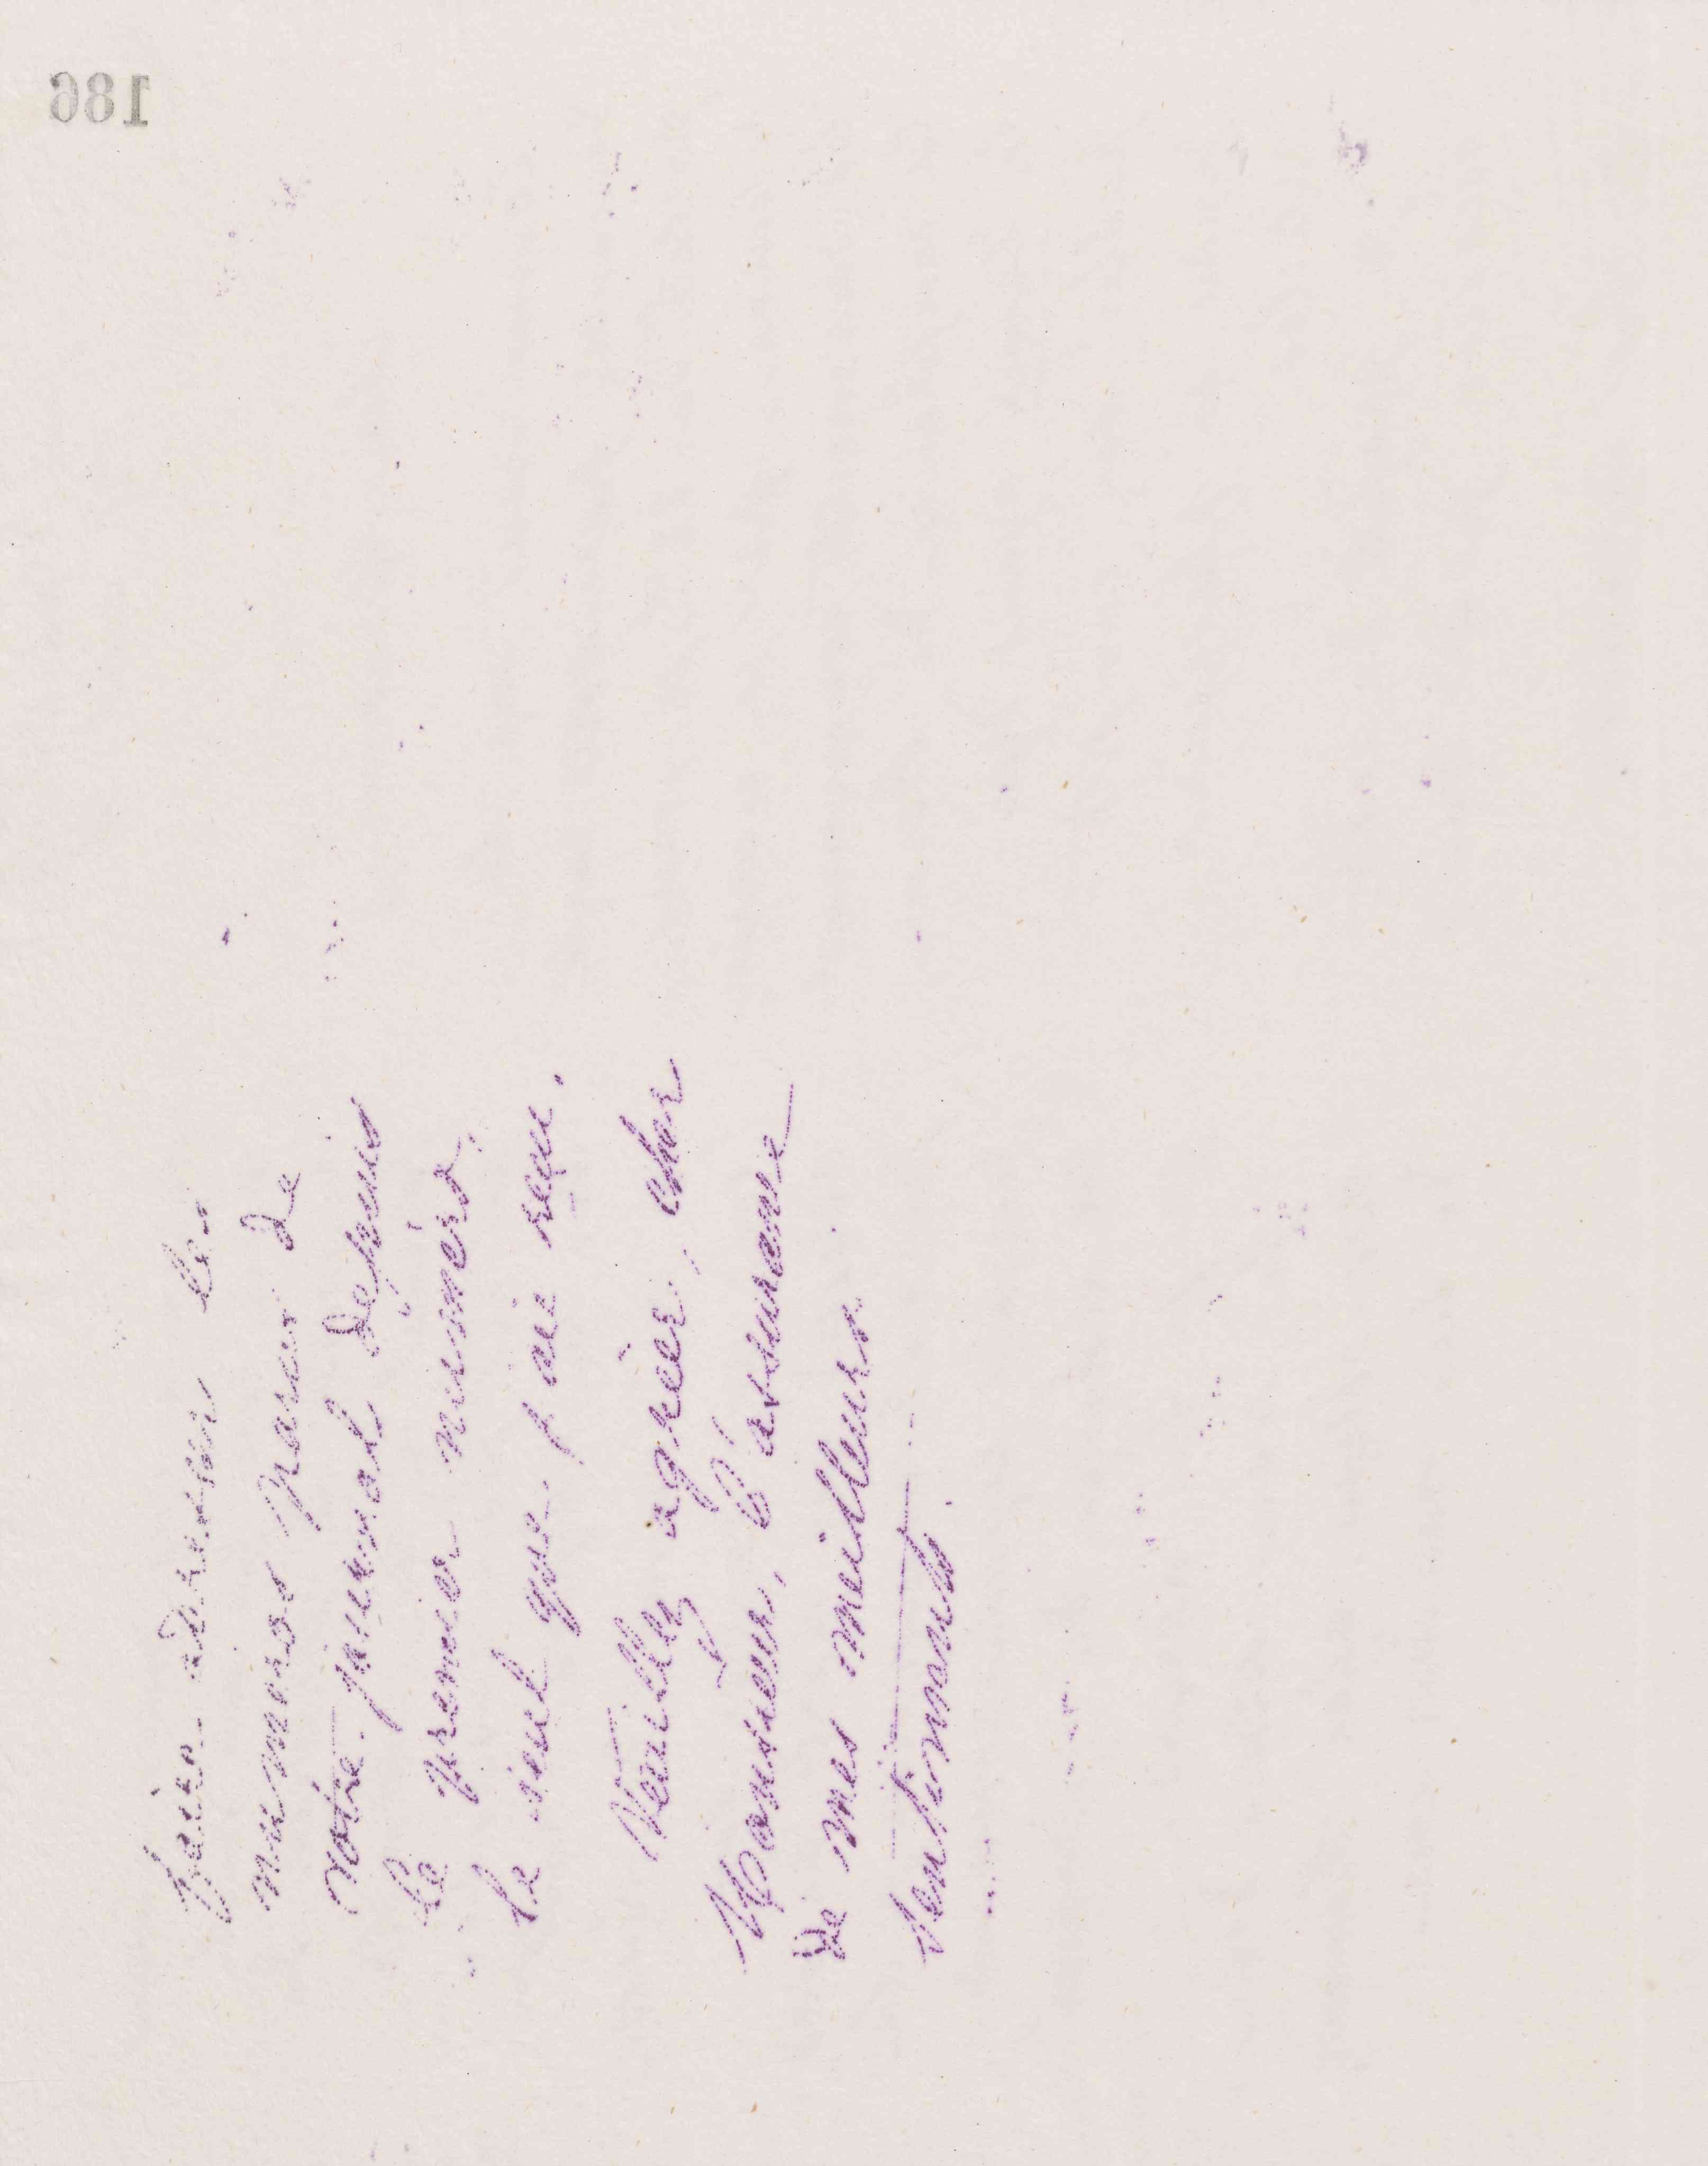 186
faire adresser les
numéros parus de
votre journal depuis
le premier numéro,
le seul que j'aie reçu.
Veuillez agréer, cher
Monsieur, l'assurance
de mes meilleurs
sentiments.